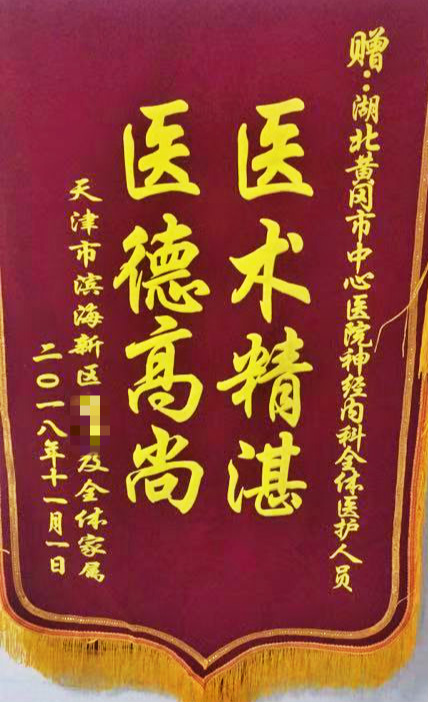 赠：湖北黄冈市中心医院神经内科全体医护人员
医术精湛
医德高尚
天津市滨海新区
及全体家属
二〇一八年十一月一日